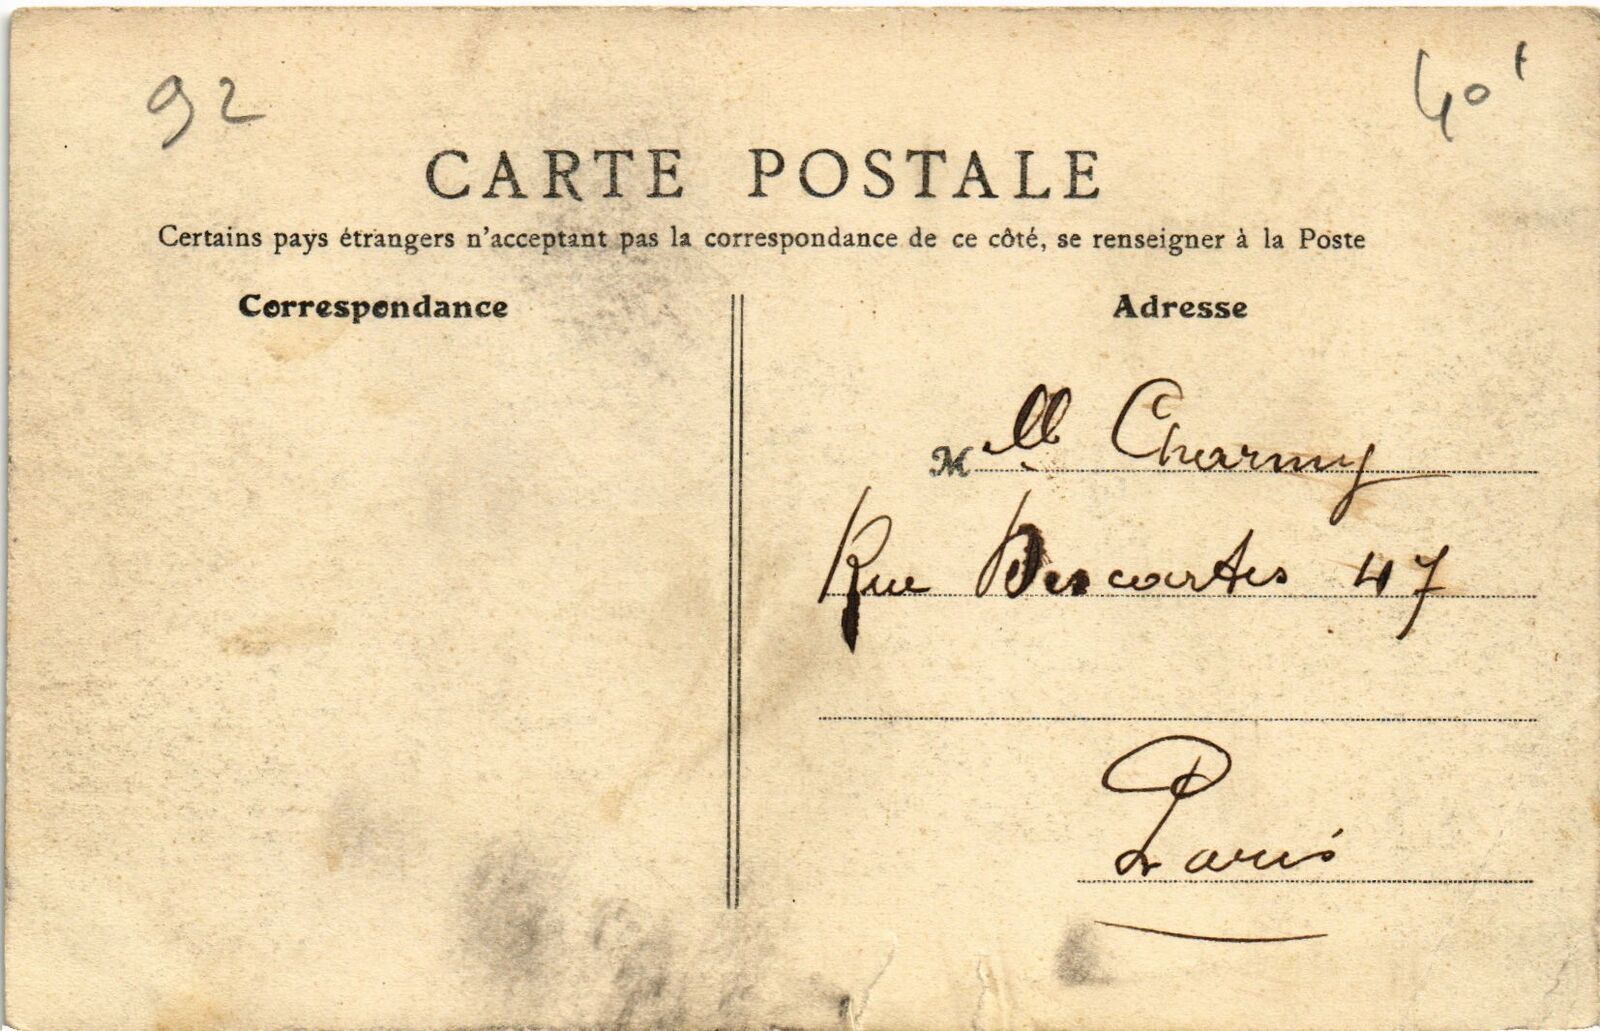 92
40f
CARTE POSTALE
Certains pays étrangers n'acceptant pas la correspondance de ce côté, se renseigner à la Poste
Correspondance
Adresse
Mlle Charmy
Rue Descartes 47
Paris